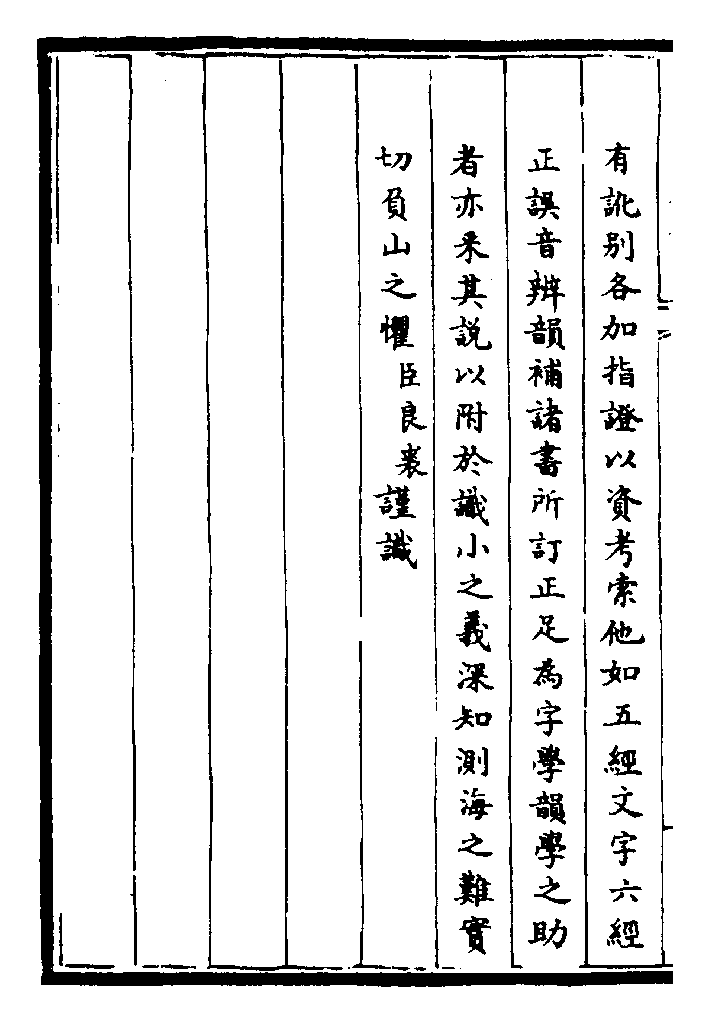 有訛别各加指證以資考索他如五經文字六經
正誤音辨韻補諸書所訂正足為字學韻學之助
者亦采其說以附於識小之義深知測海之難實
切負山之懼臣良裘謹識